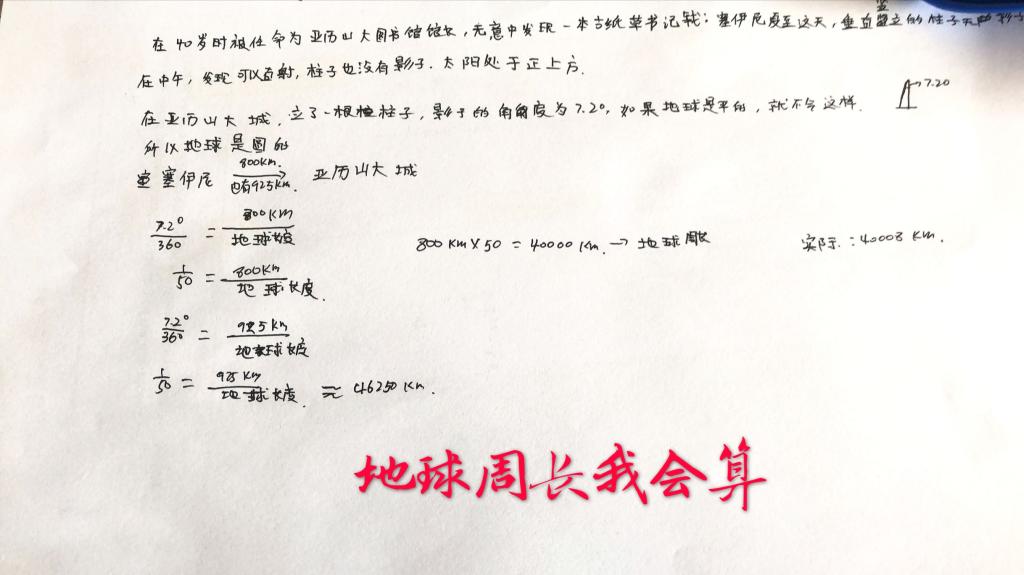 在40岁时被任命为亚历山大图书馆馆长,无意中发现一本古纸草书记载:塞伊尼夏至这天,垂直竖立的柱子
在中午,发现可以直射,柱子也没有影子.太阳处于正上方.
在亚历山大城,立了一根柱子,影子的角度为7.2°,如果地球是平的,就不会这样.
7.2°
所以地球是圆的
塞伊尼 800km. 也有925km. 亚历山大城
7.2°/360 = 800km/地球长度
800km×50=40000km.→地球周长
实际:40008km.
1/50 = 800km/地球长度.
7.2°/360 = 925km/地球长度
1/50 = 925km/地球长度. ≈ 46250km.
地球周长我会算